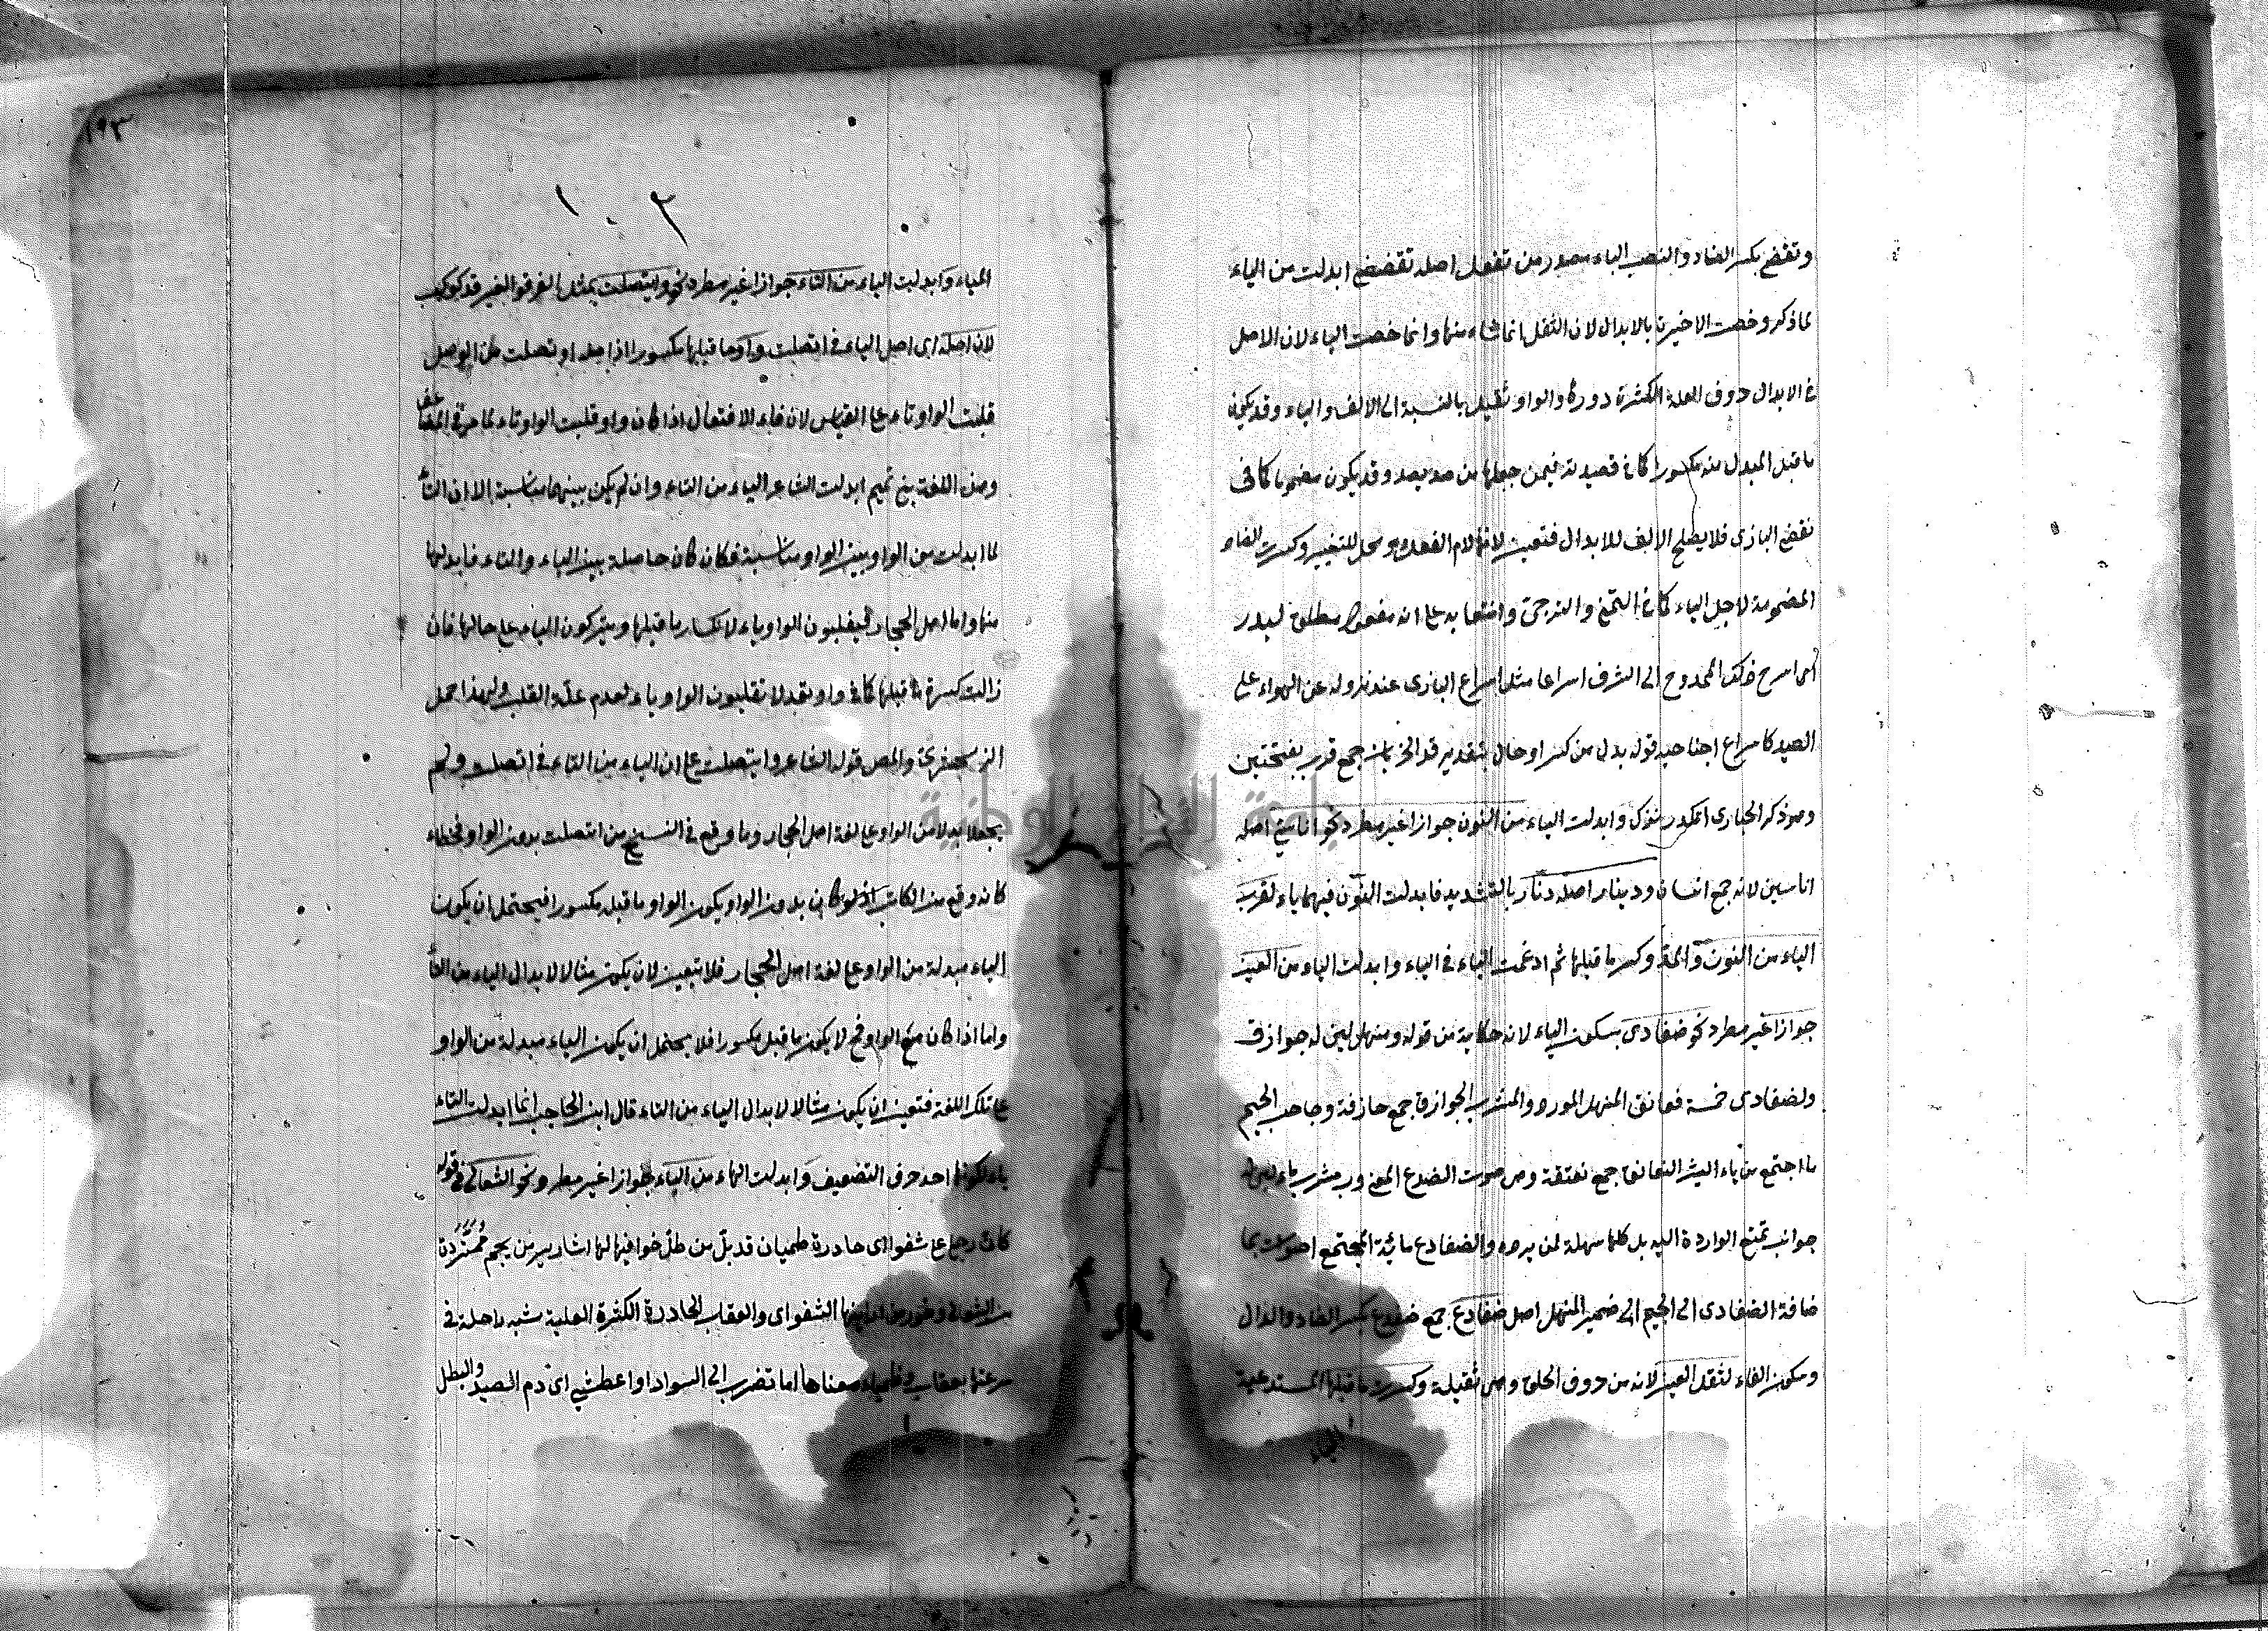 وتقضي بكسر الضاد والنصب الياء مصدر من تفعل اصله تقضض ابدلت من الياء
لما ذكر وخصت الاخيرة بالابدال لان الثقل انما نشاء منها وانما خصت الياء لان الاصل
في الابدال حروف العلة لكثرة دورها والواو ثقيل بالنسبة الى الالف والياء وقد يكون
ما قبل المبدل منه مكسورا كما في تصدية فيمن جعلها من صد يصد وقد يكون مضموما كما في
تقضي البازي فلا يصلح الالف للابدال فتعين لانها لام الفعل وهو محل للتغيير وكسرت الضاد
المضمومة لاجل الياء كما في التمني والترجي وانتصابه على انه مفعول مطلق لبدر
اي اسرع ذلك الممدوح الى الشرف اسراعا مثل اسراع البازي عند نزوله عن الهواء على
الصيد كاسراع اجناحيه قوله بدل من كسر او حال بتقدير قد الخربان جمع خرب بفتحتين
وهو ذكر الحباري وابدلت الياء من النون جوازا غير مطرد نحو اناسي اصله
اناسين لانه جمع انسان ودينار اصله دنار بالتشديد فابدلت النون فيهما ياء لقرب
الياء من النون وكسر ما قبلها ثم ادغمت الياء في الياء وابدلت الياء من العين
جوازا غير مطرد نحو ضفادي بسكون الياء لانه حكاية من قوله ومنهل ليس له حوازق
ولضفادي جمة نقانق المنهل المورد والمشرب الحوازق جمع حازقة وصاحب الجيم
ما اجتمع من ماء البئر النقانق جمع نقنقة وهي صوت الضفدع المعنى ورب مشرب ماء ليس له
جوانب تمنع الواردة اليه بل كلها سهلة لمن يرده والضفادع مائية المجتمع اصوات بما
ضافة الضفادي الى الجيم الى ضمير المنهل اصل ضفادع جمع ضفدع بكسر الضاد والدال
وسكون الفاء لثقل العين لانه من حروف الحلق وهي ثقيلة وكسرة ما قبلها المستدعية
الياء
١٩٣
١٠٣
الياء وابدلت الياء من التاء جوازا غير مطرد نحو وايتصلت بمثل
لان اصله اي اصل الياء في اتصلت واو وما قبلها مكسورا اذ اصله اوتصلت من الوصل
قلبت الواو تاء على القياس لان فاء الافتعال اذا كان واو قلبت الواو تاء لما مر في المضاعف
وهذه اللغة بني تميم ابدلت الشاعر الياء من التاء وان لم يكن بينهما مناسبة الا ان التاء
لما ابدلت من الواو وبين الواو مناسبة فكان كان حاصلة بين الياء والتاء فابدلها
منها واما اهل الحجاز فيقلبون الواو ياء لانكسار ما قبلها ويتركون الياء على حالها فان
زالت كسرة ما قبلها كما في واوتقد لا تقلبون الواو ياء لعدم علة القلب ولهذا حمل
الزمخشري والمص قوله الشاعر وايتصلت على ان الياء من التاء في اتصلت ولم
يجعلا بدلا من الواو على لغة اهل الحجاز وما وقع في النسخ من ايتصلت بدون الواو فخطاء
كانه وقع من الكاتب اذ لو كان بدون الواو يكون الواو ما قبله مكسورا فيحتمل ان يكون
الياء مبدلة من الواو على لغة اهل الحجاز فلا يتعين لان يكون مثالا لابدال الياء من التاء
واما اذا كان مع الواو فح لا يكون ما قبل مكسورا فلا يحتمل ان يكون الياء مبدلة من الواو
على تلك اللغة فتعين ان يكون مثالا لابدال الياء من التاء قال ابن الحاجب انما ابدلت التاء
ياء لكونها احد حرفي التضعيف وابدلت الهاء من الياء جوازا غير مطرد ونحو الثعالي في قوله
كان رحلي على شغواء حادرة ظمياء قد بل من طل خوافيها لها اشارير من لحم متمرة
من الثعالي ووخز من ارانيها الشغواء والعقاب الحادرة الكثيرة الصلبة شبه راحلة في
سرعتها بعقاب وظمياء معناها اما تضرب الى السواد او اعطشى الى دم الصيد والبطل